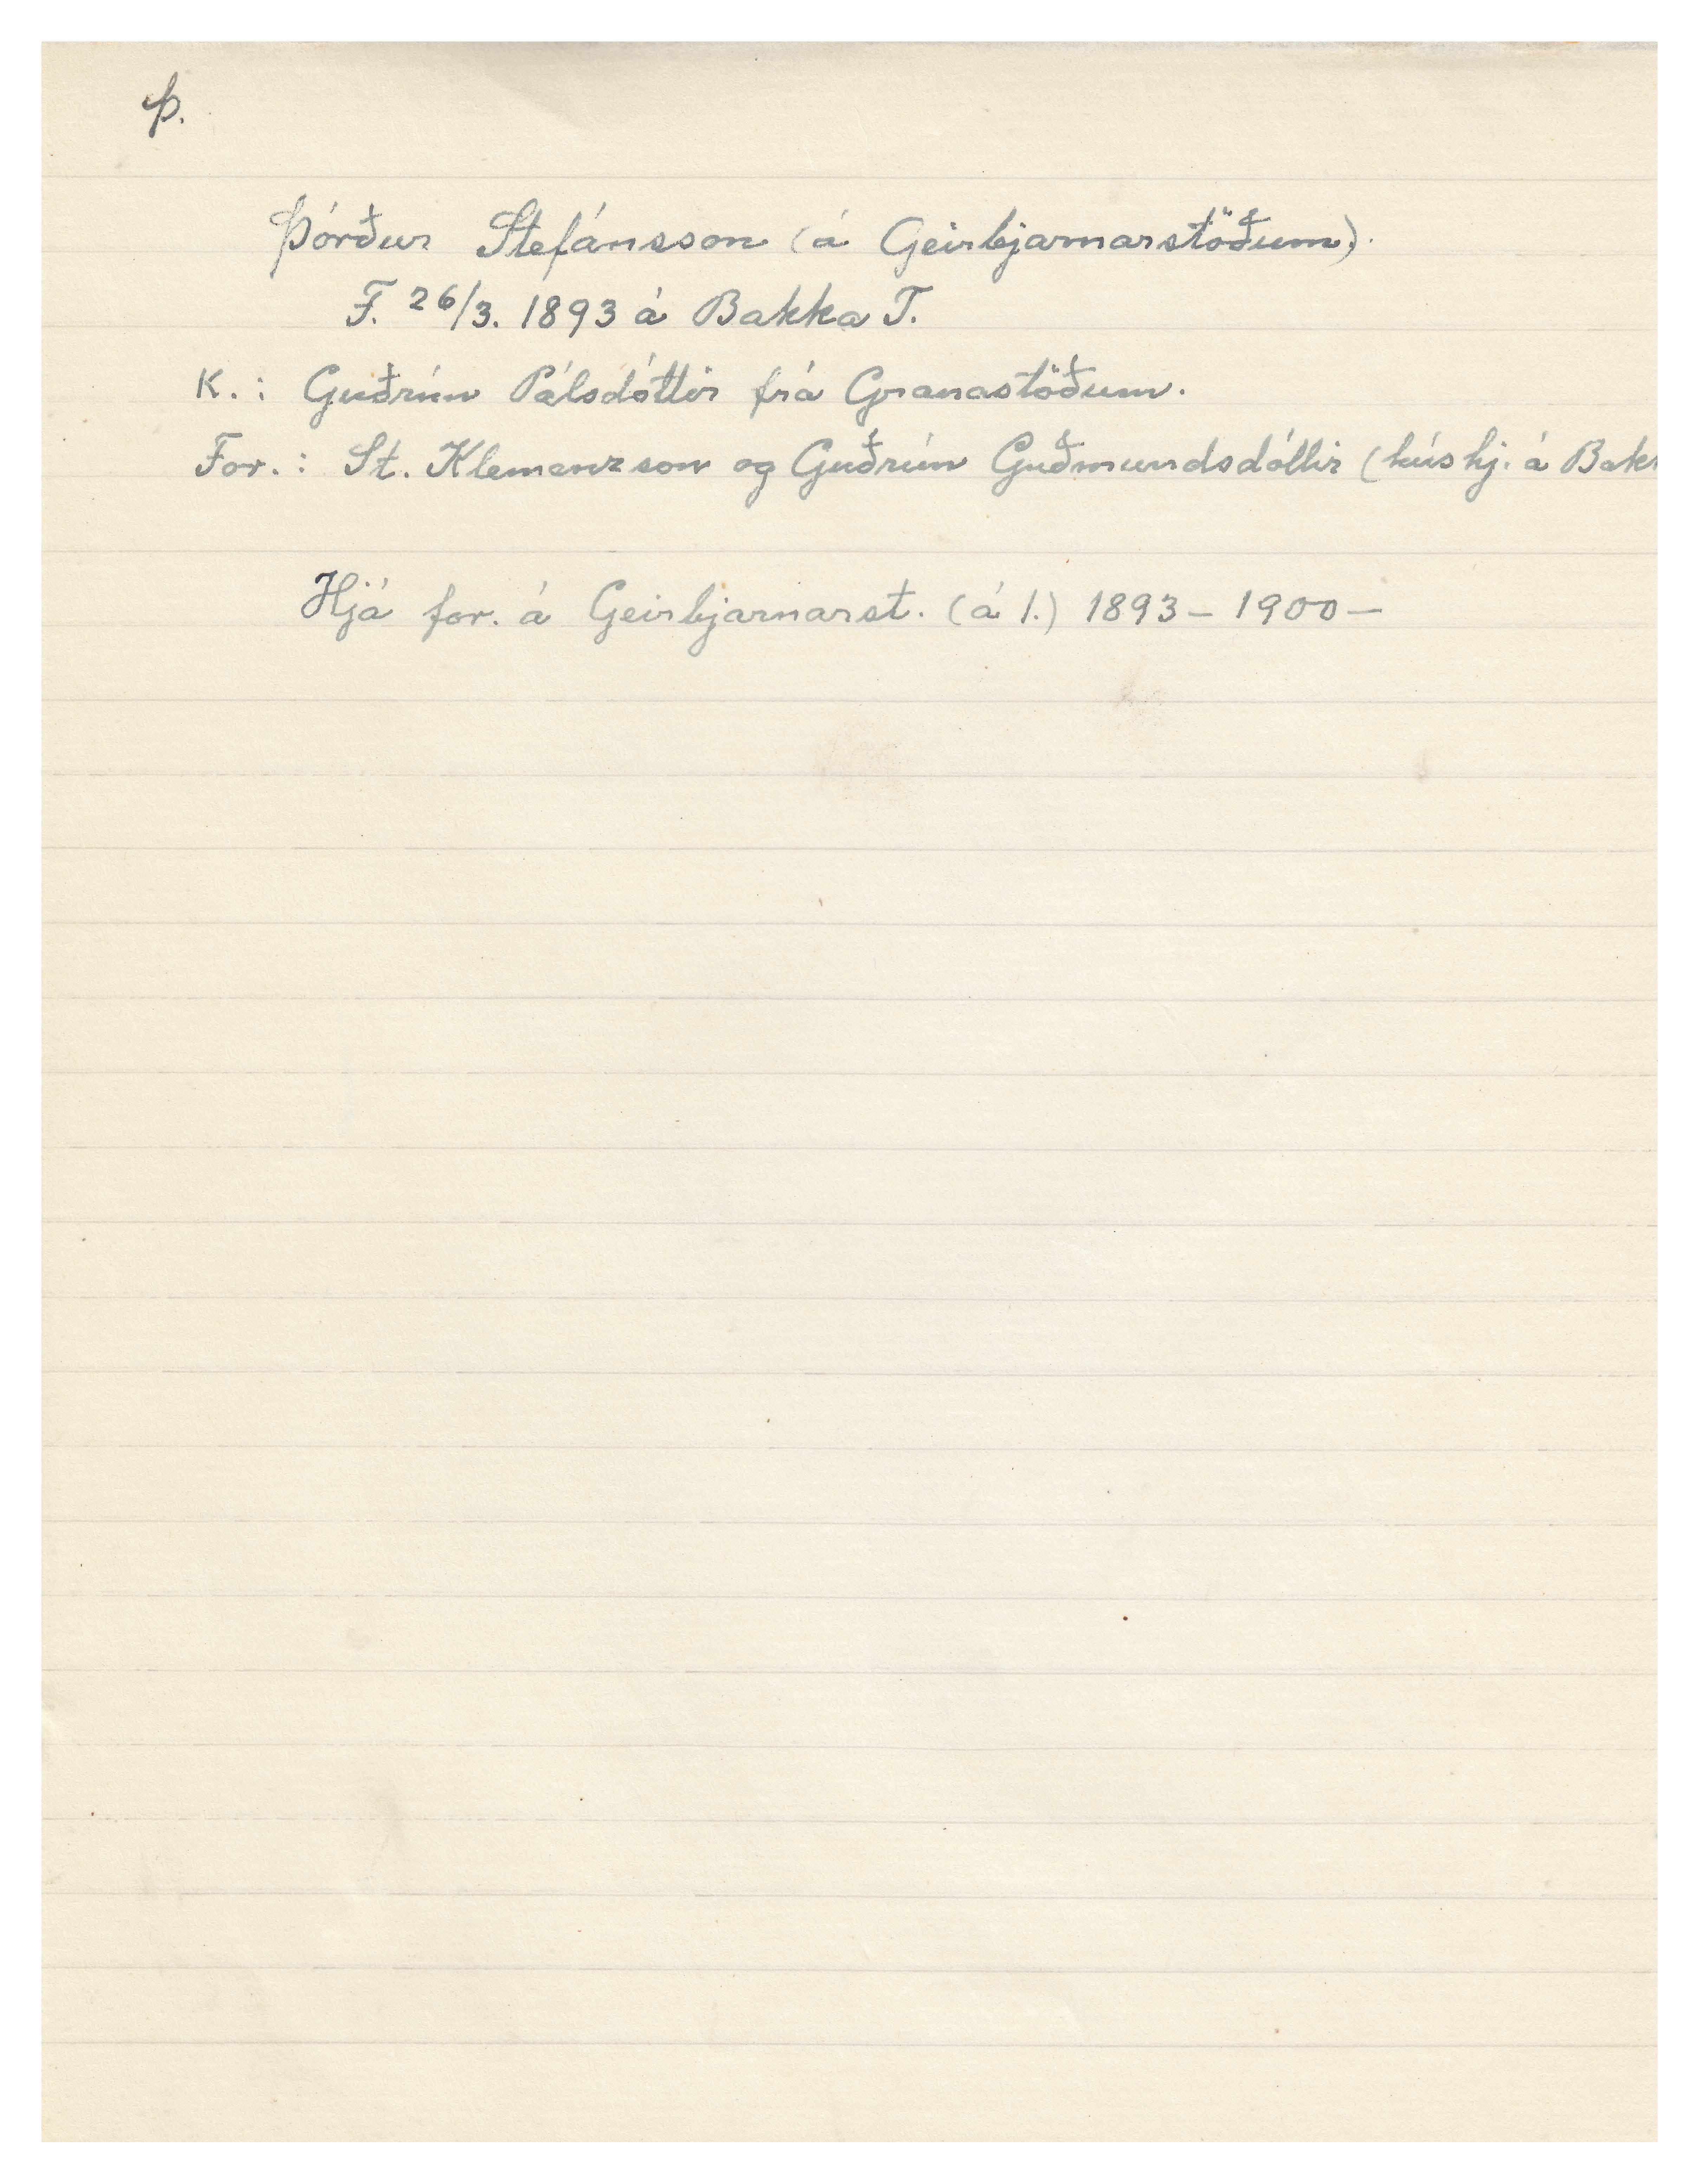 Þ.
Þórður Stefánsson (á Geirbjarnarstöðum).
F. 26/3. 1893 á Bakka T.
K.: Guðrún Pálsdóttir frá Granastöðum.
For.: St. Klemenzson og Guðrún Guðmundsdóttir (húshj. á Bak
Hjá for. á Geirbjarnarst. (á l.) 1893 – 1900 –